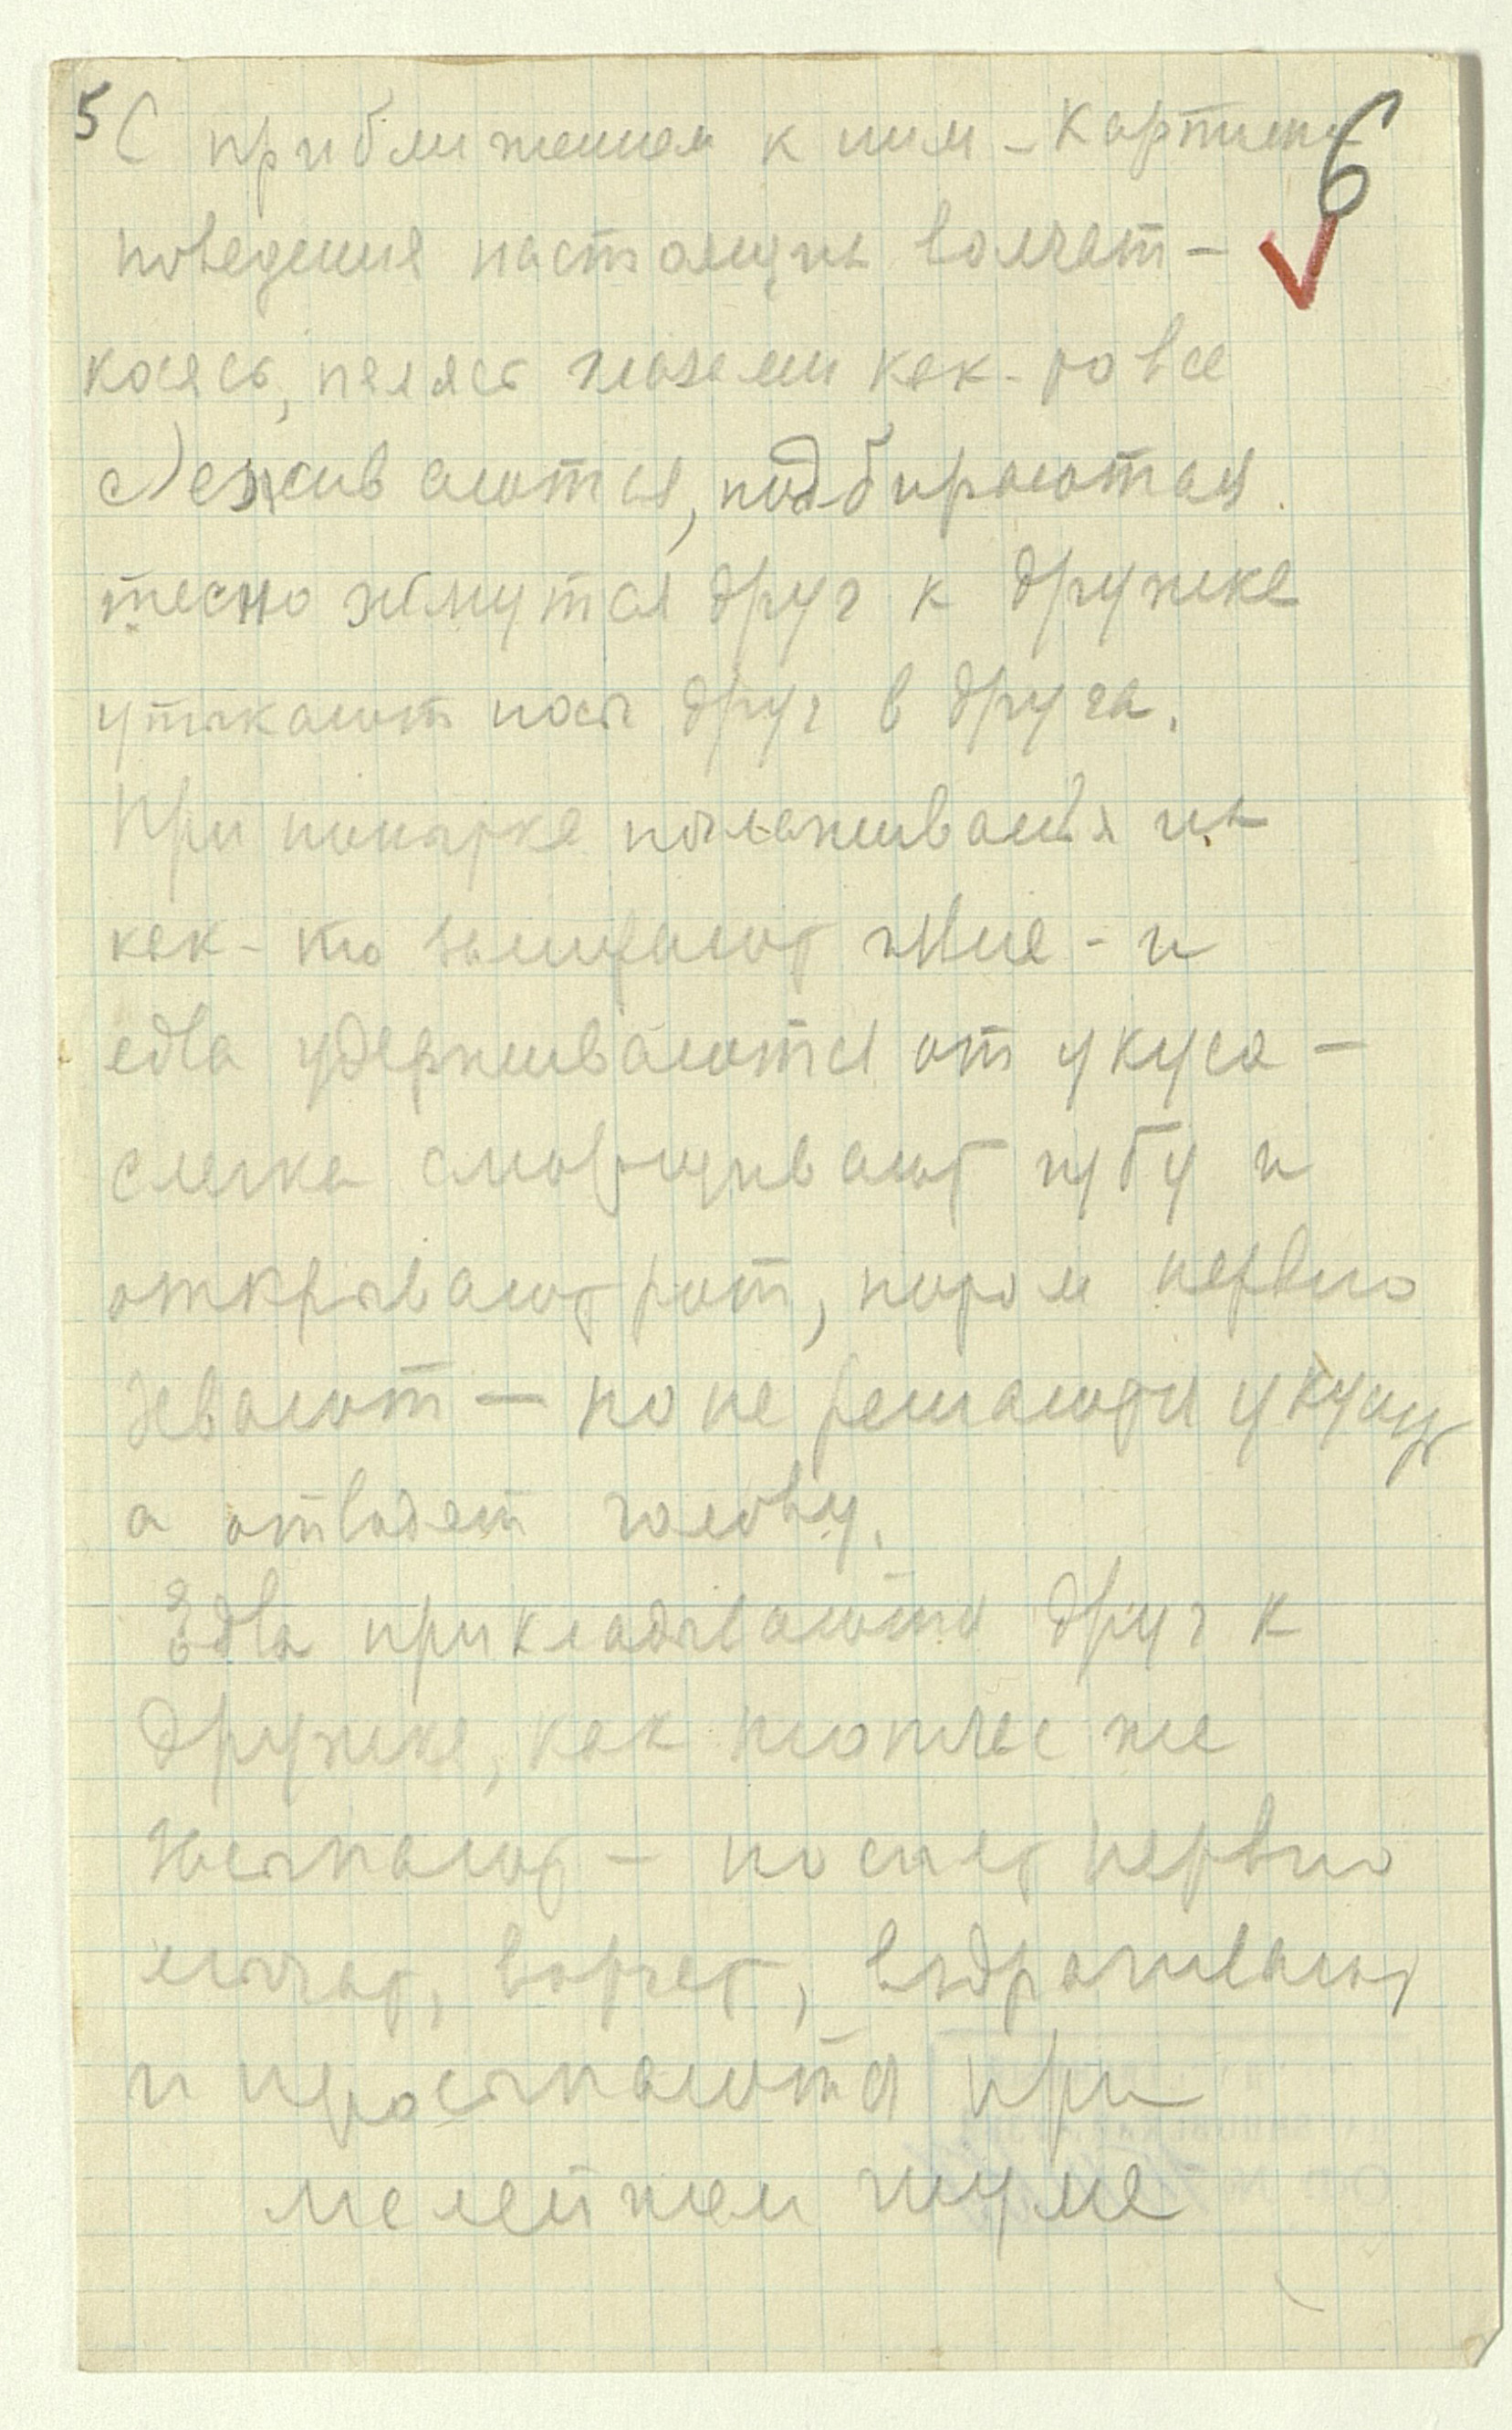 5 6
С приближением к ним – картина
поведения настоящих волчат –
косясь, пялясь глазами как-то все
съеживаются, подбираются
тесно жмутся друг к дружке
утыкают носы друг в друга.
При попытке поглаживания их
как-то замирают – и
едва удерживаются от укуса –
слегка сморщивают губу и
открывают рот, порой нервно
зевают – но не решаются укусить
а отводят голову.
Едва прикладываются друг к
дружке, как тотчас же
засыпают – но спят нервно
мычат, ворчат, вздрагивают
и просыпаются при
малейшем шуме